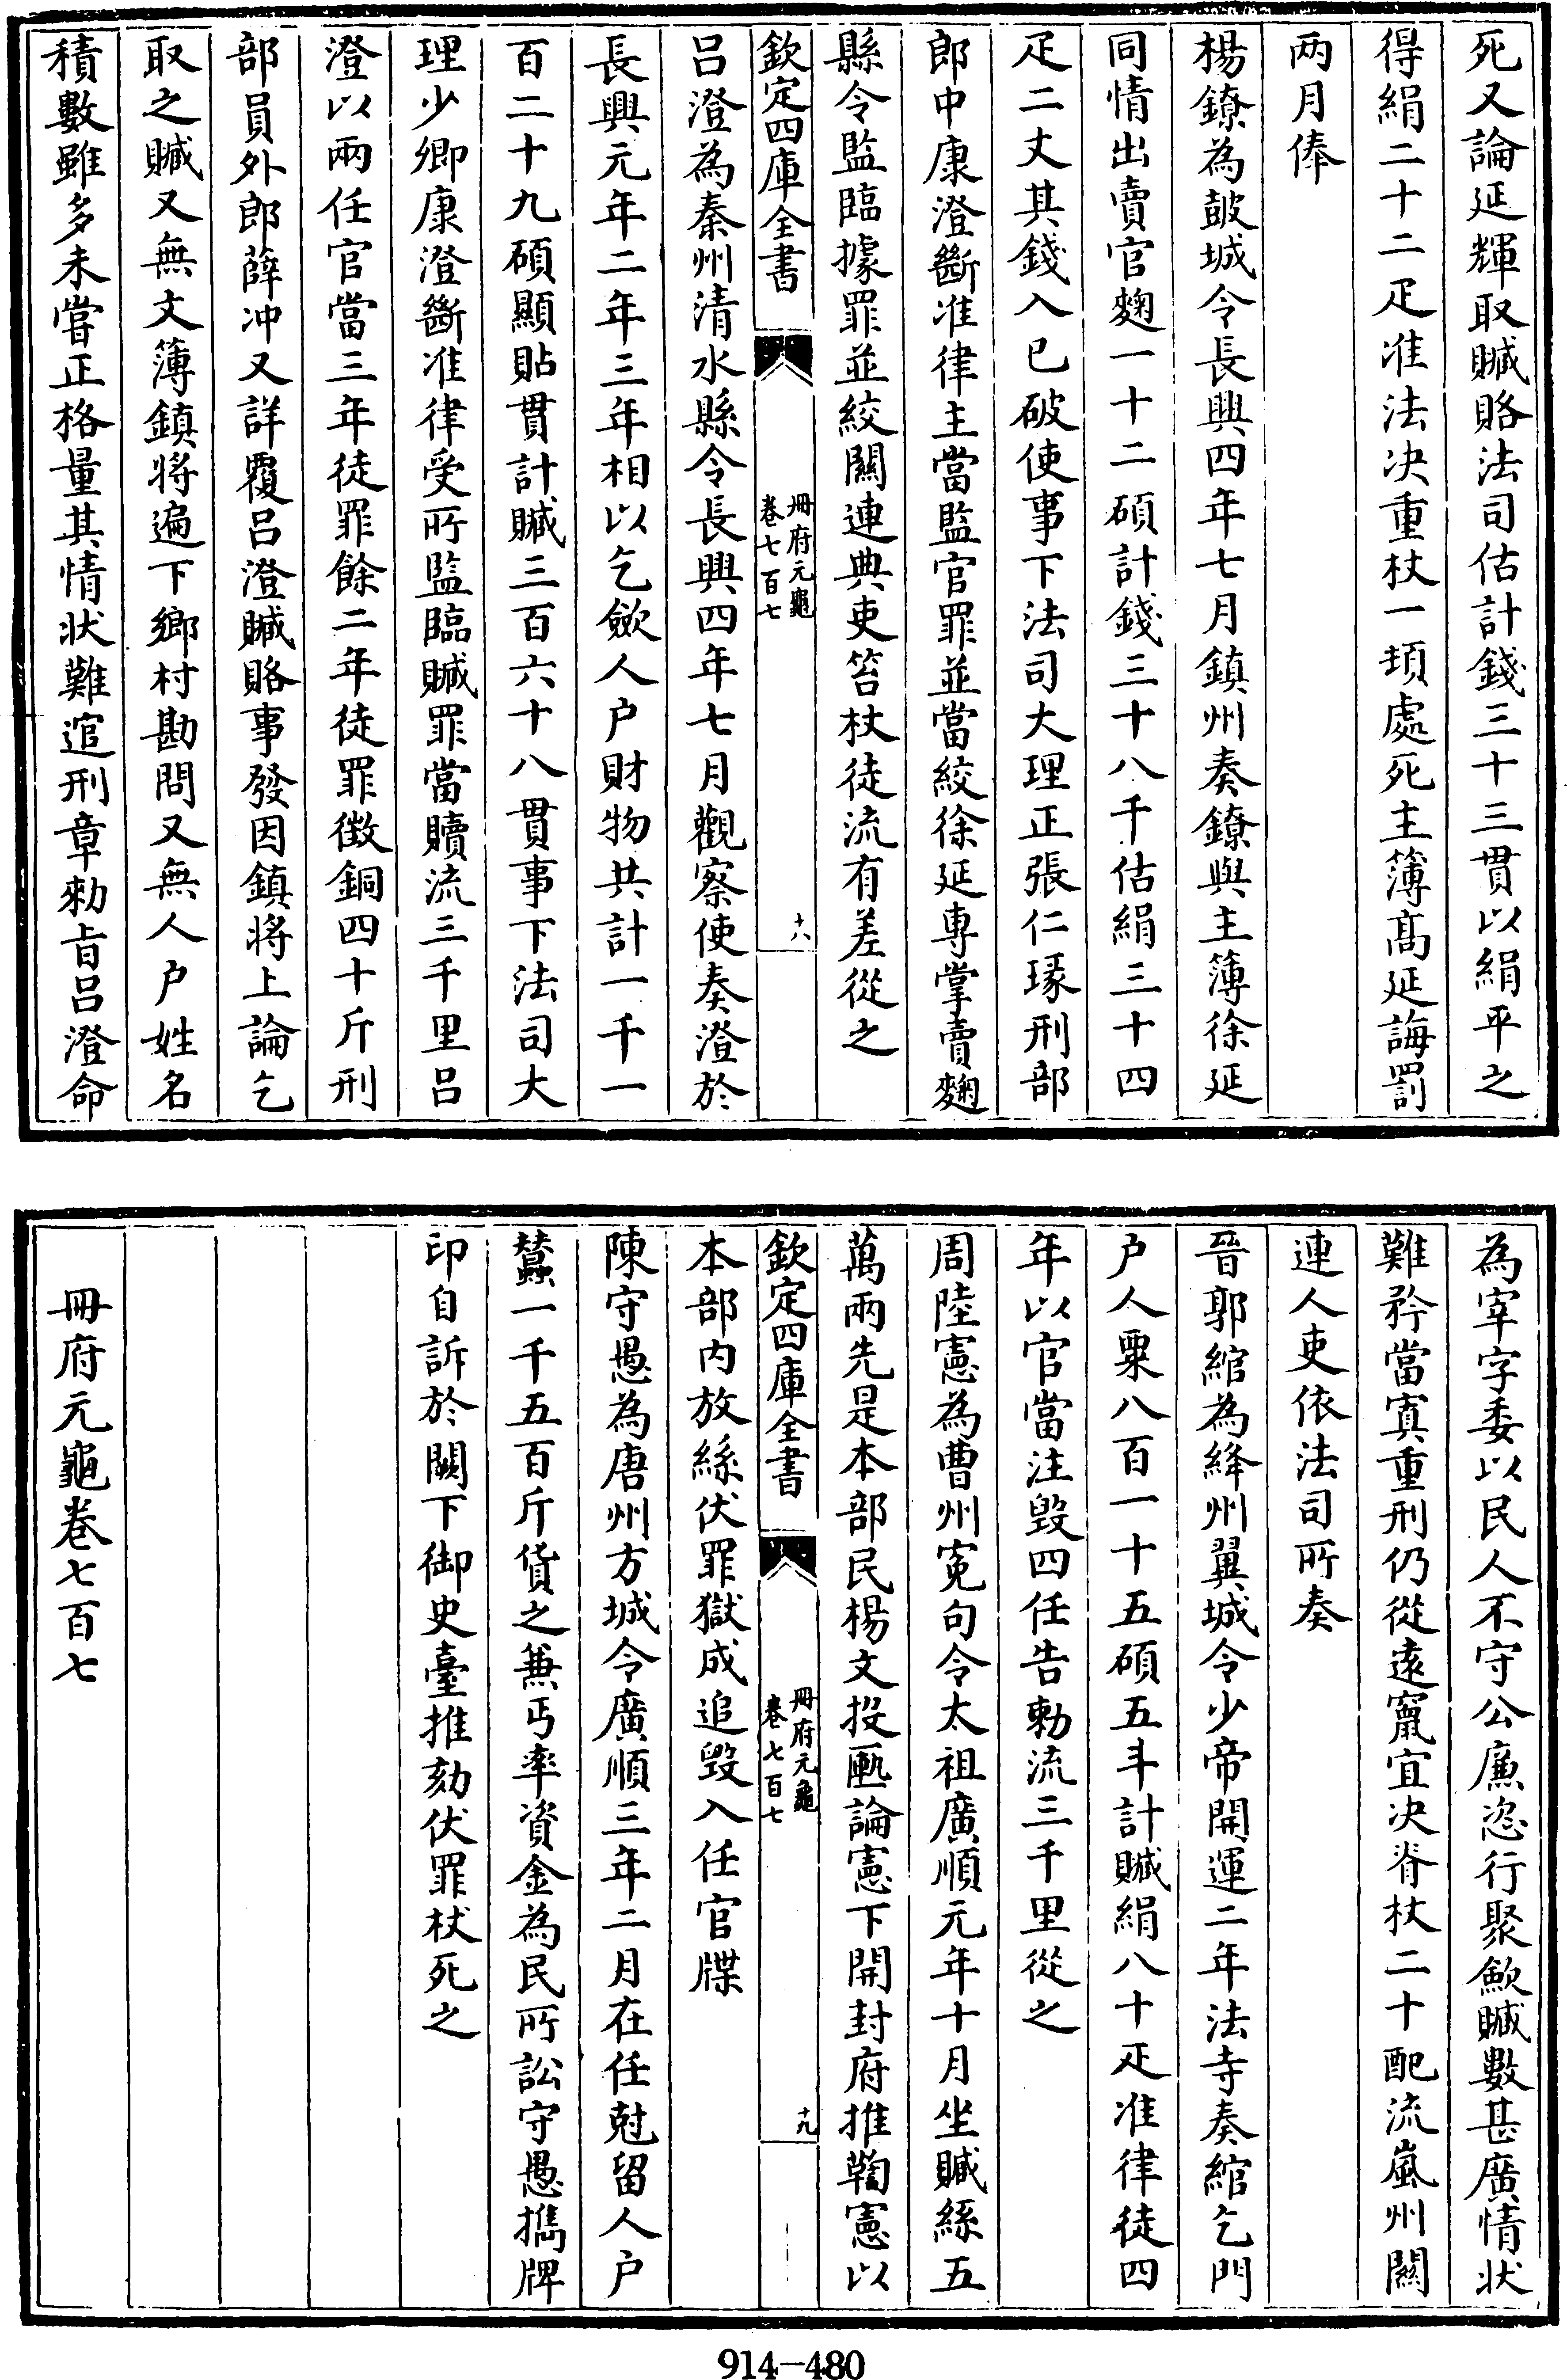 死又論延輝取贓賂法司估計錢三十三貫以絹平之
得絹二十二疋准法决重杖一頓處死主簿髙延誨罰
两月俸
楊鐐為皷城令長興四年七月鎮州奏鐐與主簿徐延
同情出賣官麴一十二碩計錢三十八千估絹三十四
疋二丈其錢入已破使事下法司大理正張仁瑑刑部
郎中康澄斷准律主當監官罪並當絞徐延專掌賣麴
縣令監臨據罪並絞闗連典吏笞杖徒流有差從之
欽定四庫全書
冊府元龜
卷七百七
十八
吕澄為秦州清水縣令長興四年七月觀察使奏澄於
長興元年二年三年相以乞歛人户財物共計一千一
百二十九碩顯貼貫計贓三百六十八貫事下法司大
理少卿康澄斷准律受所監臨贓罪當贖流三千里吕
澄以兩任官當三年徒罪餘二年徒罪徴銅四十斤刑
部員外郎薛冲又詳覆吕澄贓賂事發因鎮将上論乞
取之贓又無文簿鎮将遍下鄉村勘問又無人户姓名
積數雖多未嘗正格量其情状難逭刑章勅㫖吕澄命
為宰字委以民人不守公廉恣行聚歛贓數甚廣情状
難矜當寘重刑仍從逺竄宜决脊杖二十配流嵐州闗
連人吏依法司所奏
晉郭綰為絳州翼城令少帝開運二年法寺奏綰乞門
户人粟八百一十五碩五斗計贓絹八十疋准律徒四
年以官當注毁四任告勅流三千里從之
周陸憲為曹州寃句令太祖廣順元年十月坐贓絲五
萬兩先是本部民楊文投匭論憲下開封府推鞫憲以
欽定四庫全書
冊府元龜
卷七百七
十九
本部内放絲伏罪獄成追毁入任官牒
陳守愚為唐州方城令廣順三年二月在任尅留人户
蠶一千五百斤貨之兼丐率資金為民所訟守愚攜牌
印自訴於闕下御史臺推劾伏罪杖死之
冊府元龜卷七百七
914-480